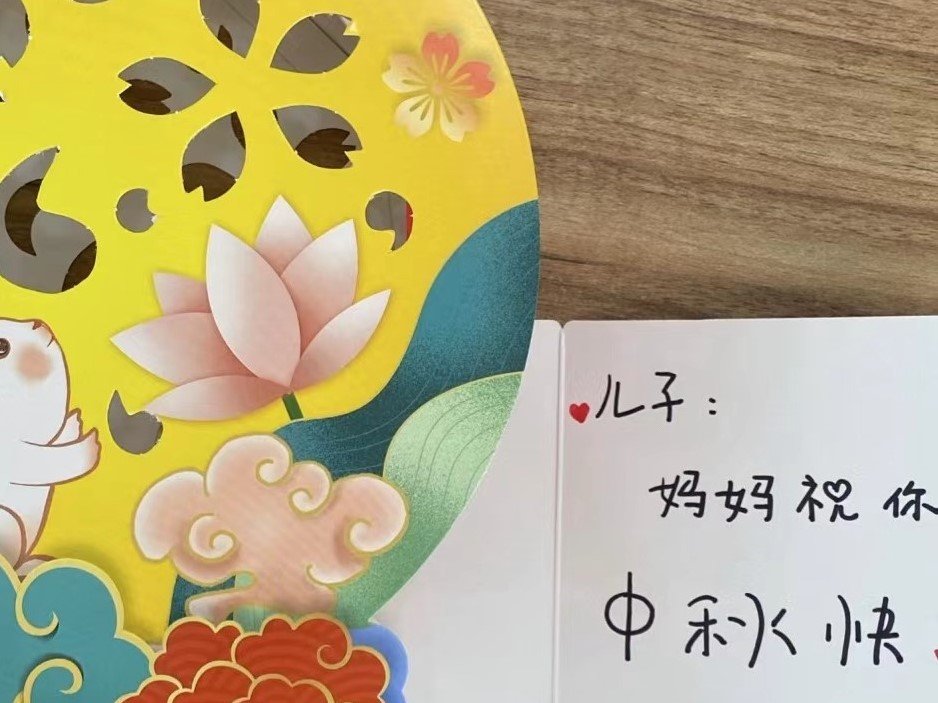 儿子：
妈妈祝你
中秋快